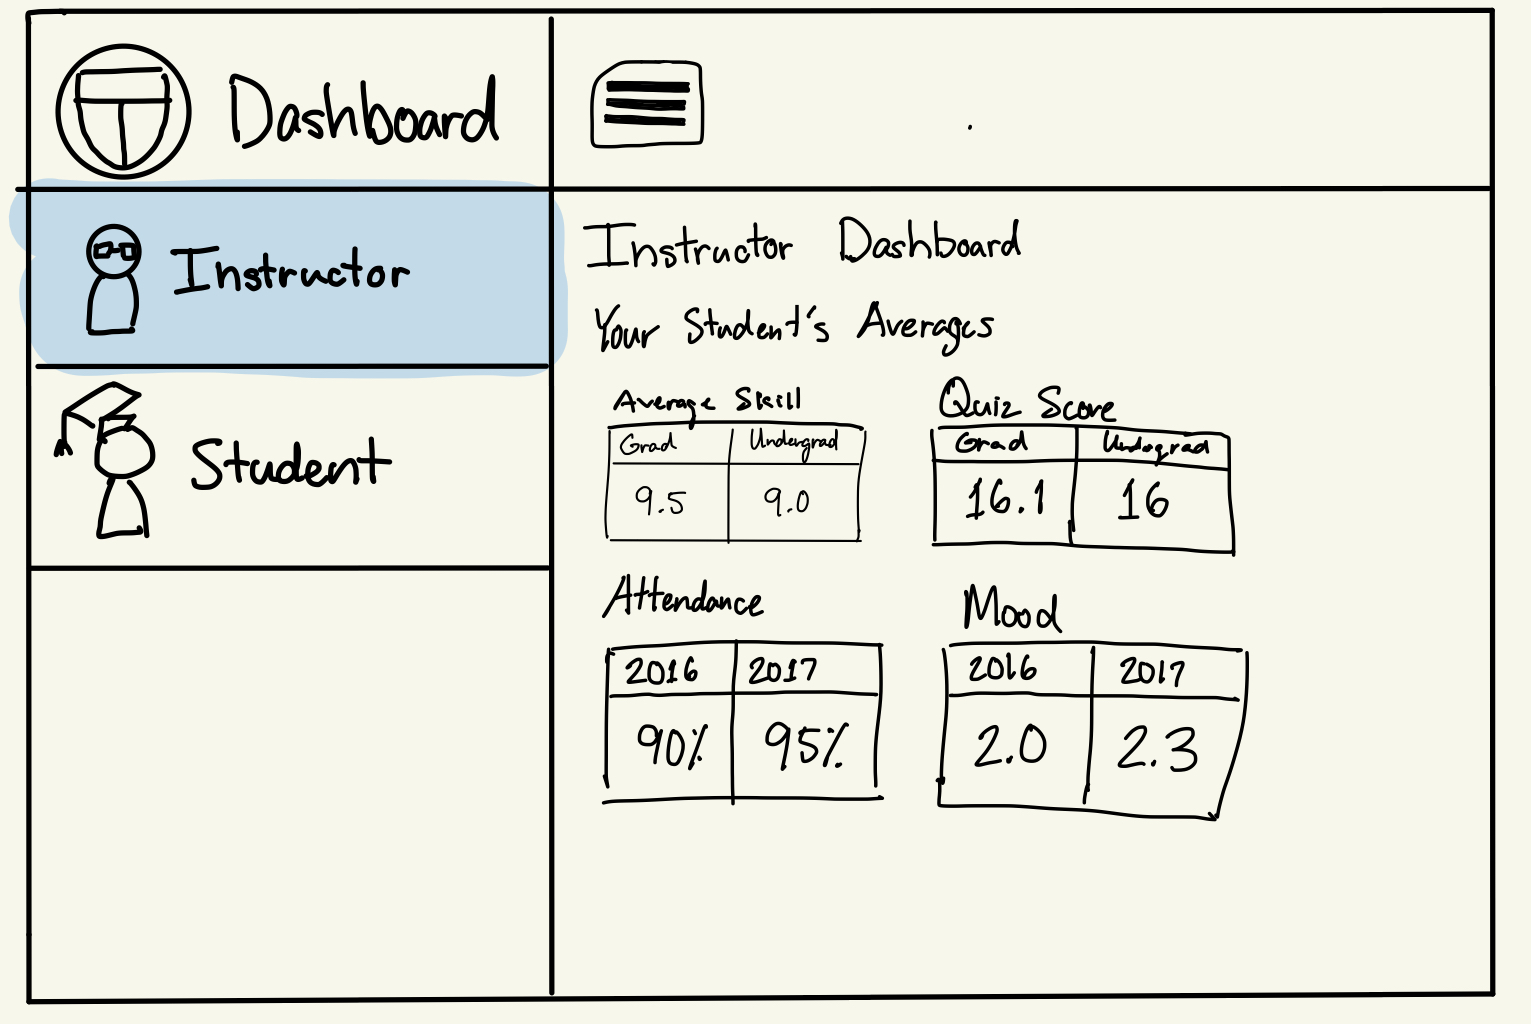 Dashboard
Instructor
Student
Instructor Dashboard
Your Student's Averages
Average Skill
Grad Undergrad
9.5 9.0
Quiz Score
Grad Undergrad
16.1 16
Attendance
2016 2017
90% 95%
Mood
2016 2017
2.0 2.3